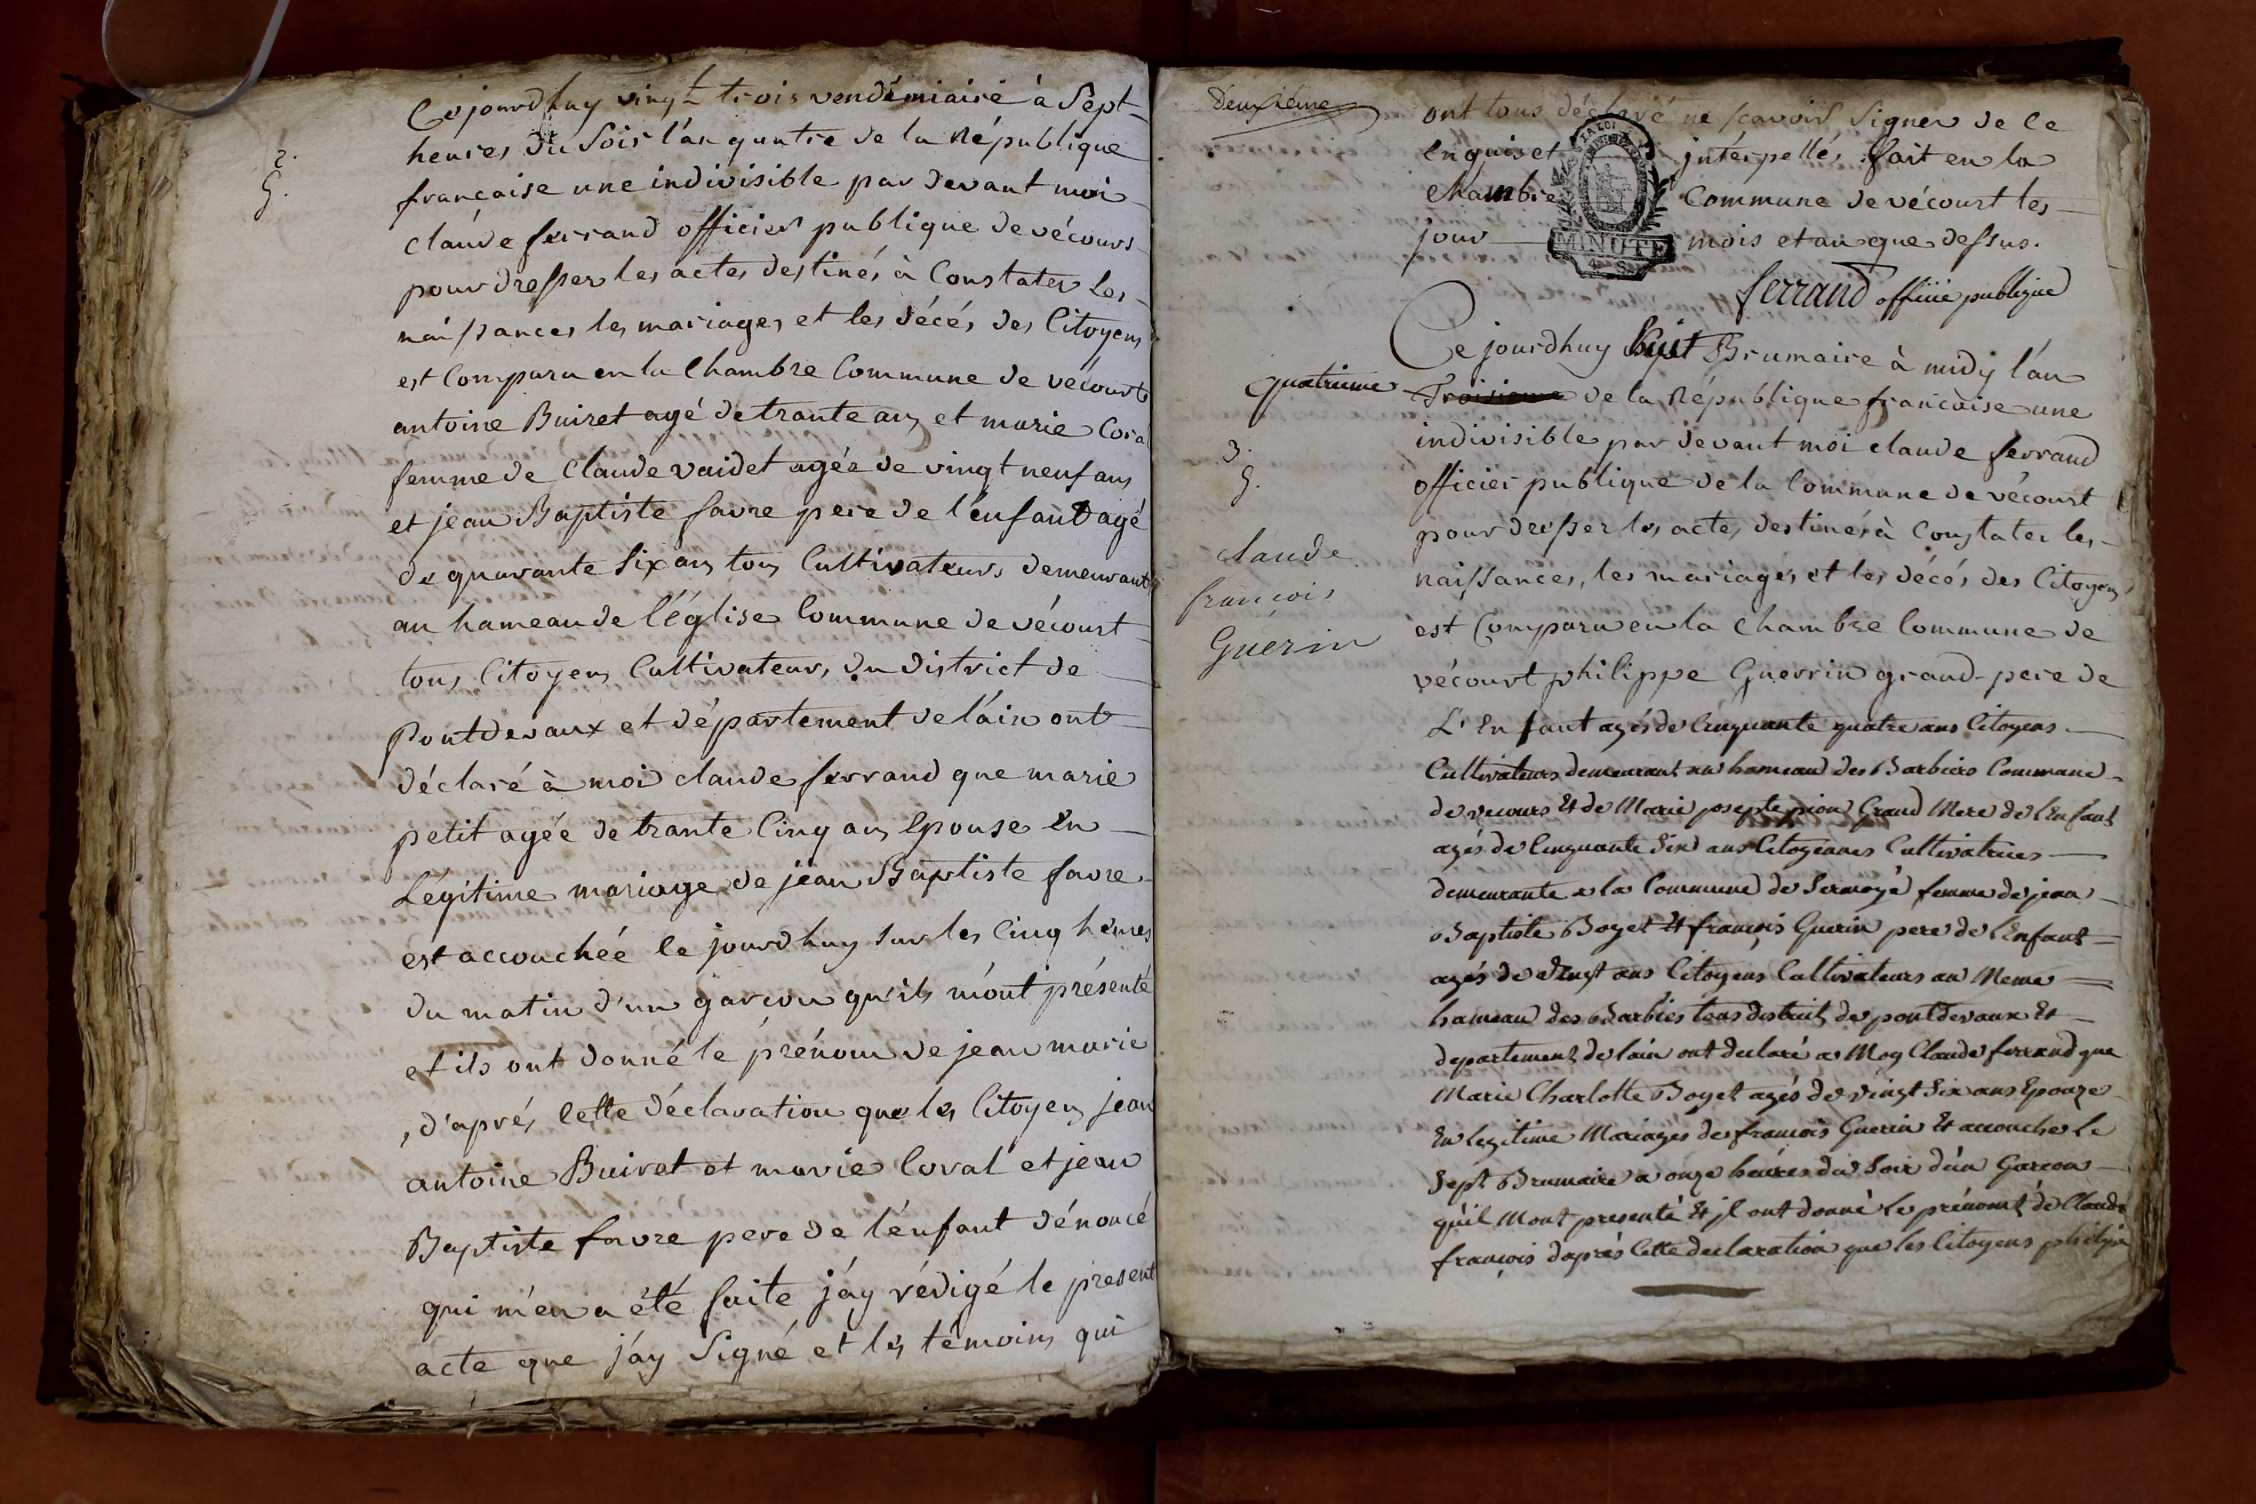 2.
G.
Cejourdhuy vingt trois vendémiaire à Sept
heures du Soir l'an quatre de la République
française une indivisible par devant moi
claude ferrand officier publique de vécours
pour dresser les actes destinés à Constater Les
naissances les mariages et les décés des Citoyens
est Comparu en la Chambre Commune de vecourt
antoine Buiret agé de trante ans et marie Coral
femme de Claude vaidet agée de vingt neuf ans
et jean Baptiste favre pere de l'enfant agé
de quarante Six ans tous Cultivateurs demeurant
au hameau de l'église Commune de vécourt
tous Citoyens Cultivateurs du district de
Pontdevaux et département de l'ain ont
déclaré à moi claude ferrand que marie
petit agée de trante Cinq ans Epouse En
Légitime mariage de jean Baptiste favre
est accouchée le jourdhuy sur les Cinq heures
du matin d'un garçon qu'ils m'ont présenté
et ils ont donné le prénom de jean marie
, d'aprés Cette déclaration que les Citoyens jean
antoine Buiret et marie Coral et jean
Baptiste favre pere de l'enfant dénoncé
qui m'en a été faite j'ay rédigé le present
acte que j'ay Signé et les témoins qui
Deuxième
ont tous déclaré ne scavoir Signer de Ce
Enquis et jntérpellés fait en la
Chambre Commune de vécourt les
jour mois et an que dessus.
LA LOI
MINUTE
ferrand officie publique
Ce jourdhuy huit Brumaire à midy l'an
quatrieme Troisieme de la République francaise une
indivisible par devant moi claude ferrand
3.
G.
officier publique de la Commune de vécourt
pour dresser les actes destinés à Constater les
claude
françois
Guérin
naissances, les mariages et les décés des Citoyens
est Comparu en la Chambre Commune de
vécourt philippe Guerrin grand-pere de
L'Enfant agés de Cinquante quatre ans Citoyens
Cultivateurs demeurant au hameau des Barbiers Commune
de vecours Et de Marie josepte pion Grand Mere de L'Enfant
agés de Cinquante Six ans Citoyennes Cultivatrices
demeurante a la Commune de Sermoyé femme de jean
Baptiste Boyet Et françois Guerin pere de L'Enfant
agés de vingt ans Citoyens Cultivateurs au Meme
hameau des Barbies tous distrit de pontdevaux Et
departement de lain ont declaré a Moy Claude ferrand que
Marie Charlotte Boyet agés de vingt Six ans Epouze
En legitime Mariages de francois Guerin Et accouche le
Sept Brumaire a onze heures du Soir d'un Garcon
qu'il Mont presenté Et jl ont donné le prénomt de Claude
françois daprés Cette declaration que les Citoyens philipe